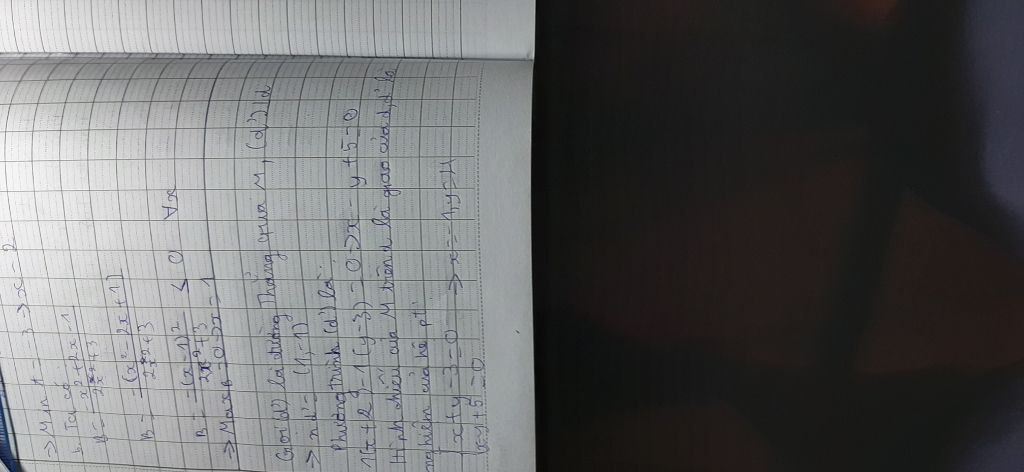 => Min A = - 3 => x = 2
b. Ta có
B = -x² + 2x - 1 / 2x² + 3
B = -(x² - 2x + 1) / 2x² + 3
B = -(x - 1)² / 2x² + 3 ≤ 0 ∀x
=> Max B = 0 => x = 1
Gọi (d') là đường thẳng qua M, (d') ⊥ d
=> n d' = (1, -1)
Phương trình (d') là:
1(x + 2) - 1(y - 3) = 0 => x - y + 5 = 0
Hình chiếu của M trên d là giao của d, d' là
nghiệm của hệ pt
{ x + y - 3 = 0 => x = -1, y = 4
x - y + 5 = 0